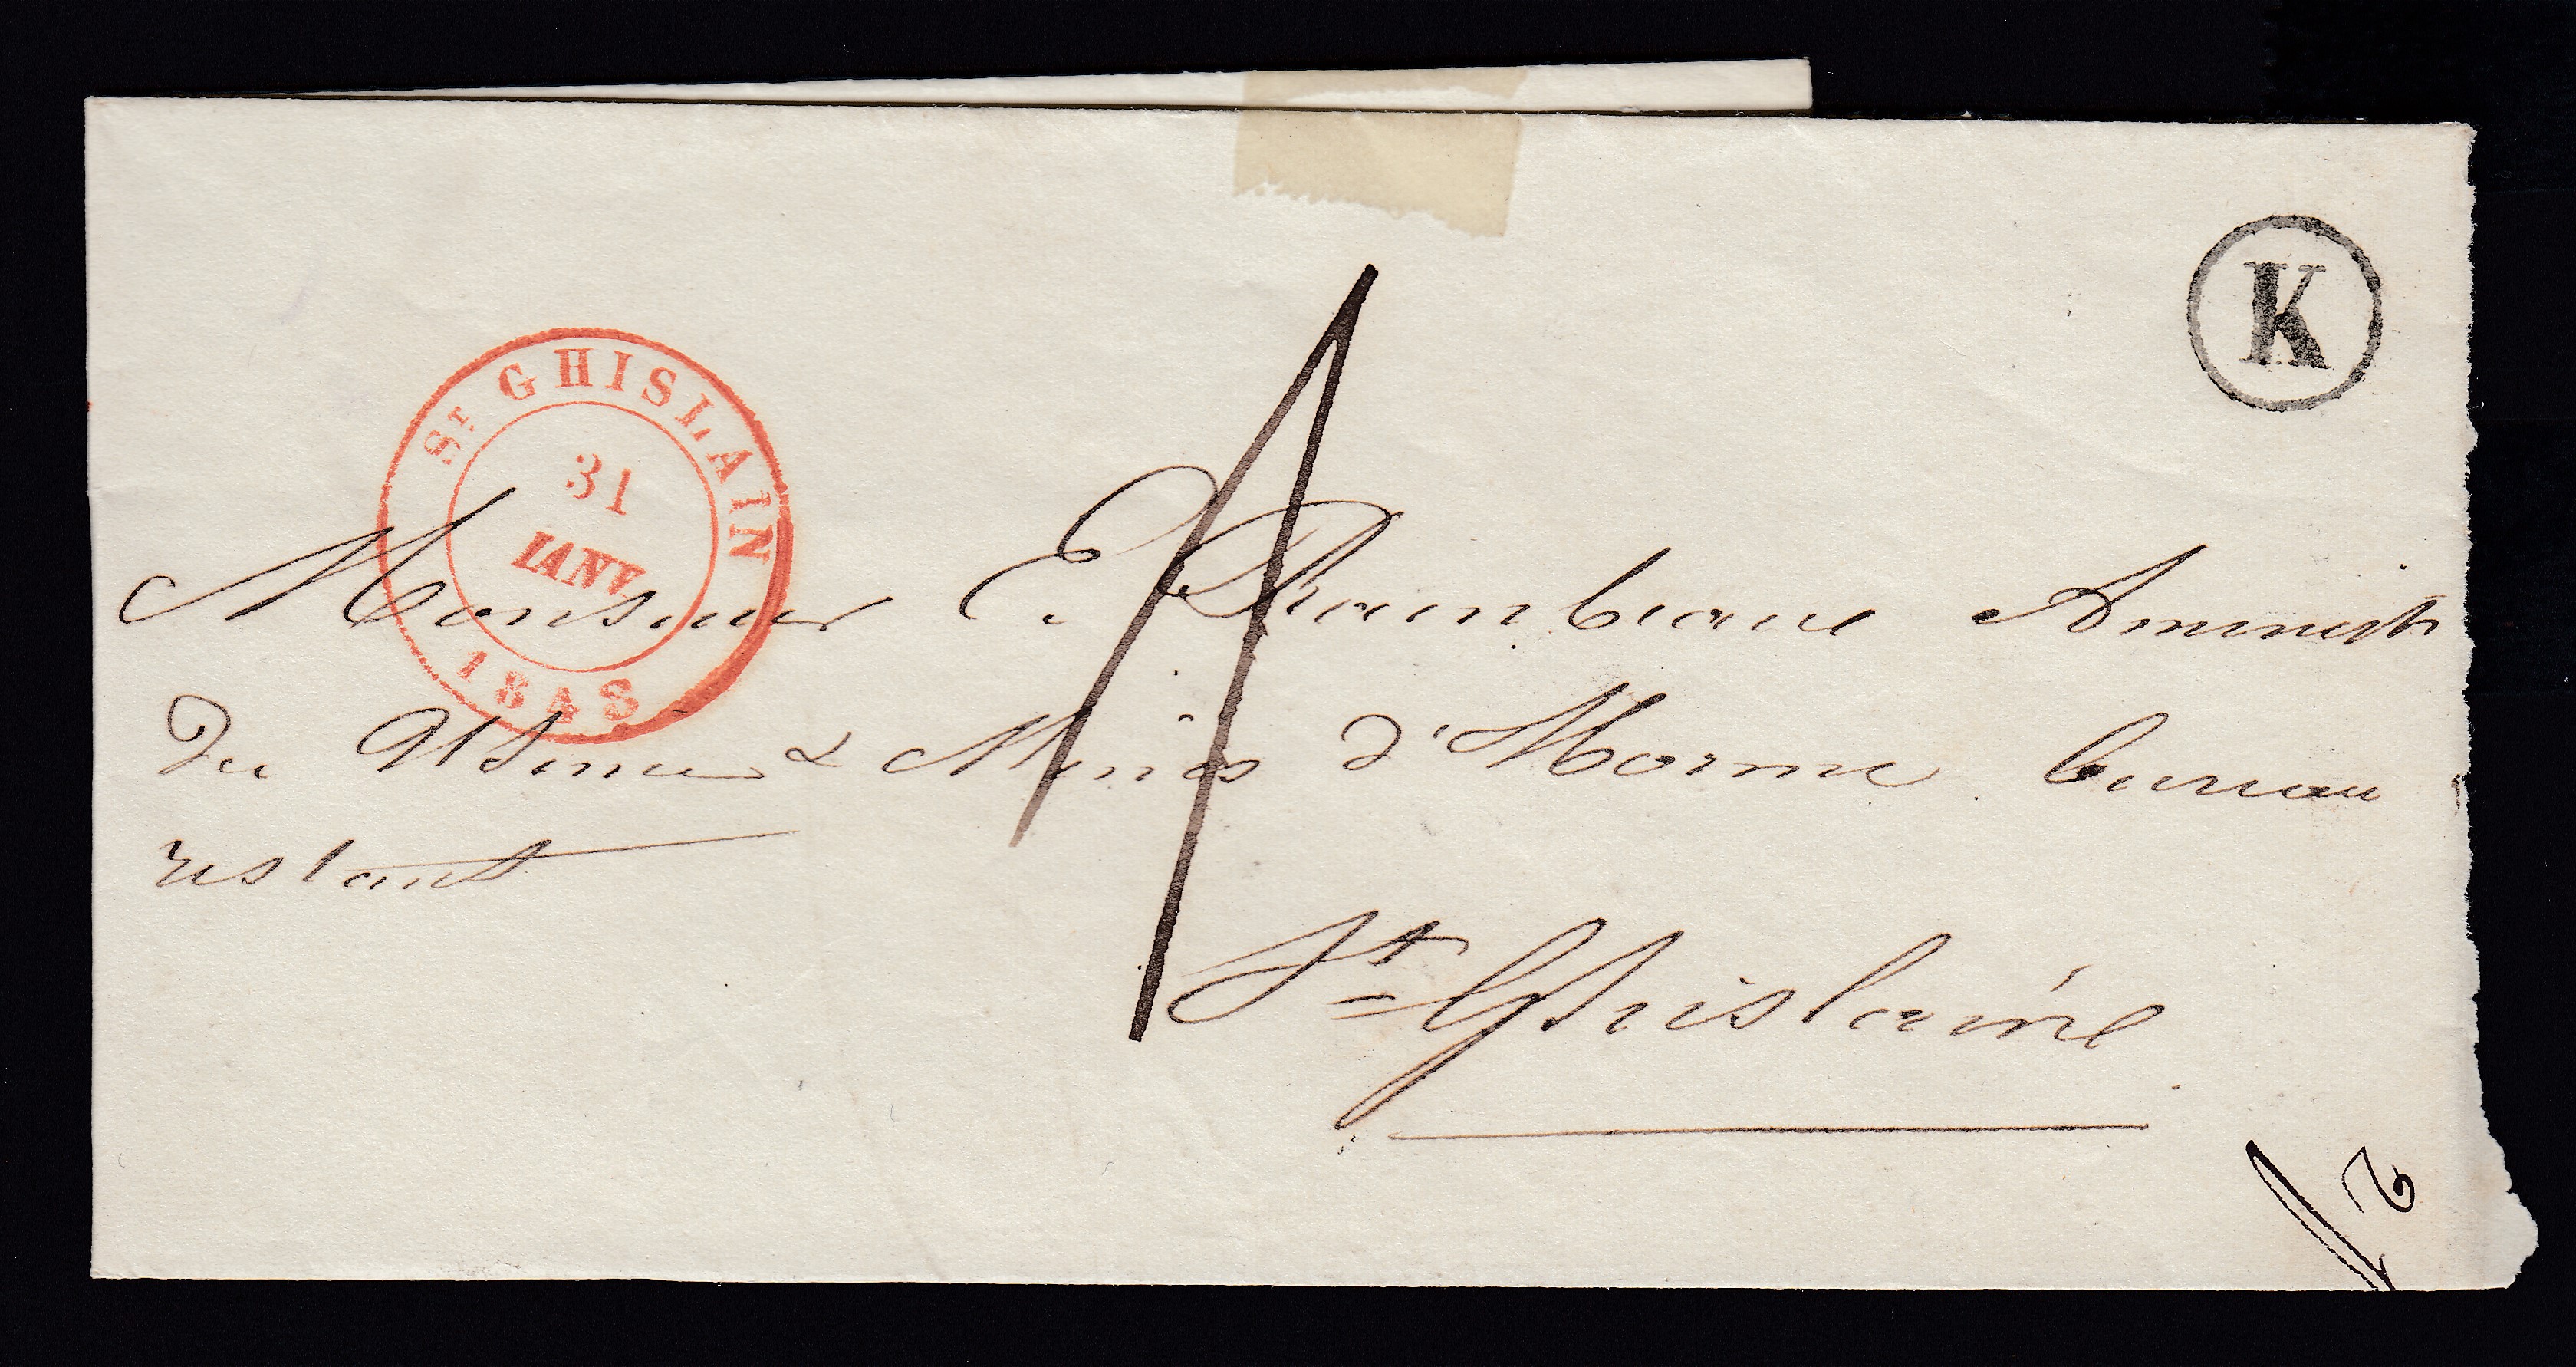 K
St GHISLAIN
31
IANV.
1848
1
Monsieur E. Rainbeaux Administr
des Usines & Mines d'Hornu bureau
restant
St Ghislaine